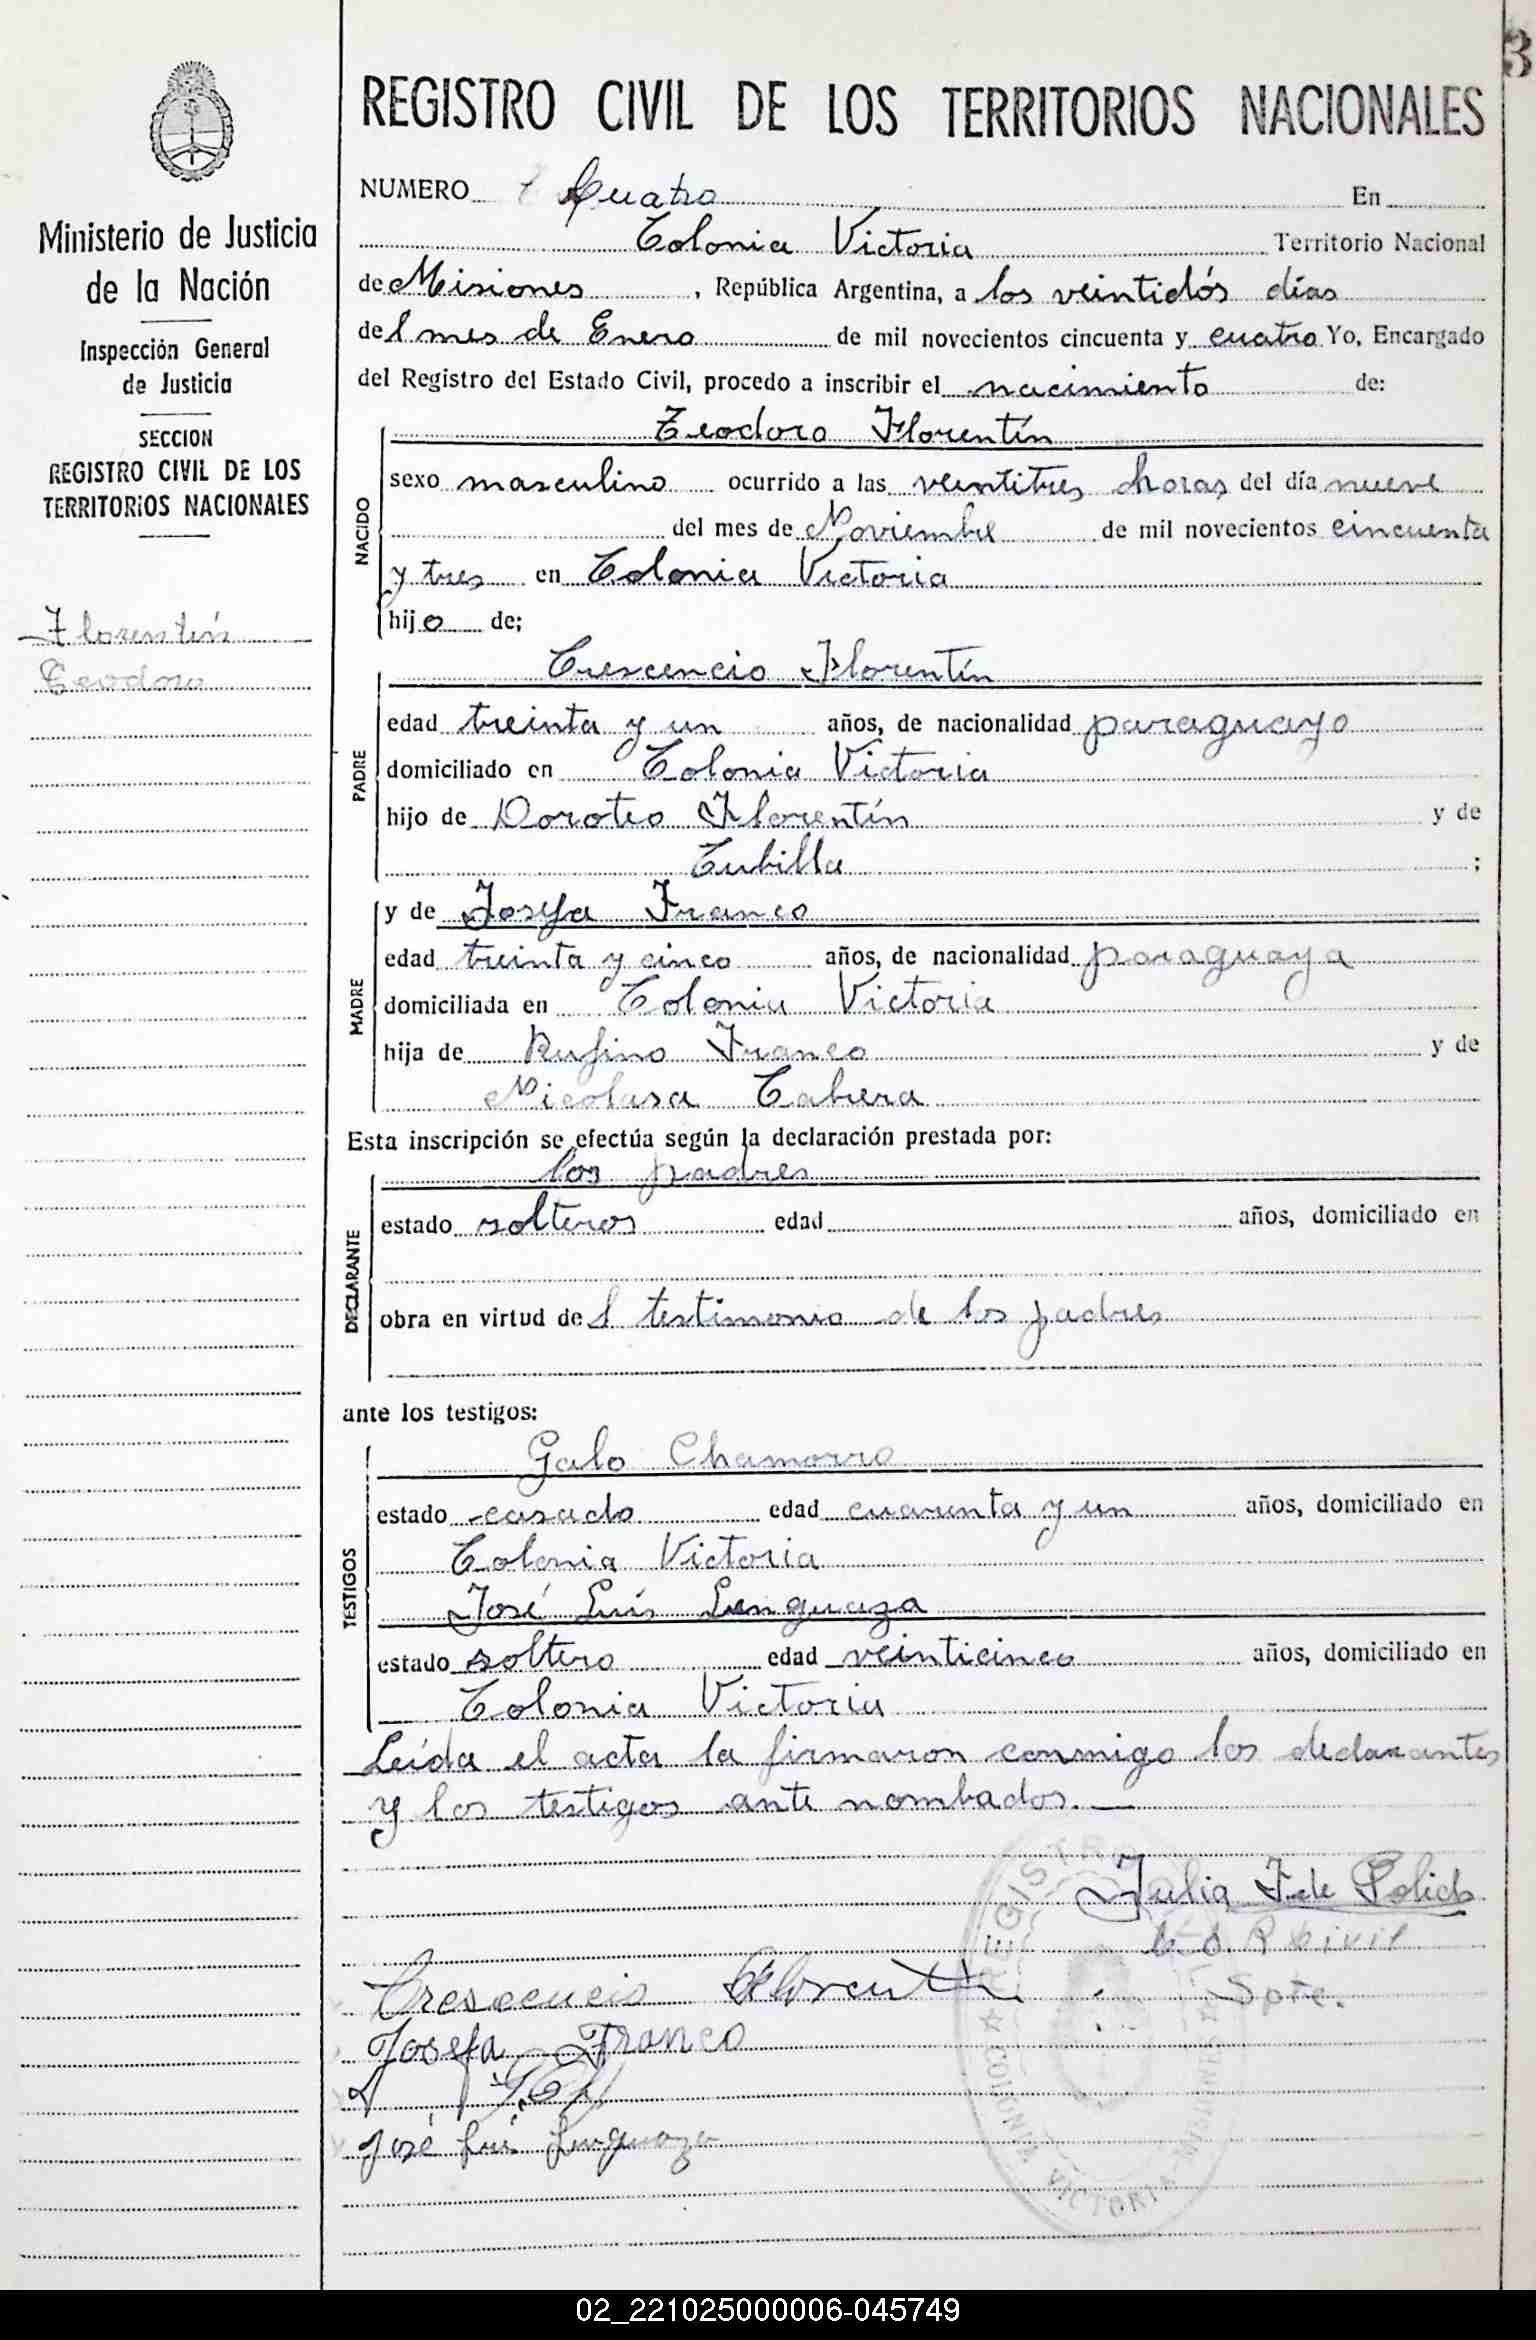 3
REGISTRO CIVIL DE LOS TERRITORIOS NACIONALES
Ministerio de Justicia
de la Nación
Inspección General
de Justicia
SECCION
REGISTRO CIVIL DE LOS
TERRITORIOS NACIONALES
Florentín
Teodoro
NUMERO Cuatro En
Colonia Victoria Territorio Nacional
de Misiones, República Argentina, a los veintidós días
del mes de Enero de mil novecientos cincuenta y cuatro Yo, Encargado
del Registro del Estado Civil, procedo a inscribir el nacimiento de:
NACIDO
Teodoro Florentín
sexo masculino ocurrido a las veintitres horas del día nueve
del mes de Noviembre de mil novecientos cincuenta
y tres en Colonia Victoria
hijo de;
PADRE
Crescencio Florentín
edad treinta y un años, de nacionalidad paraguayo
domiciliado en Colonia Victoria
hijo de Doroteo Florentín y de
Cubilla ;
MADRE
y de Josefa Franco
edad treinta y cinco años, de nacionalidad paraguaya
domiciliada en Colonia Victoria
hija de Rufino Franco y de
Nicolasa Cabrera
Esta inscripción se efectúa según la declaración prestada por:
DECLARANTE
los padres
estado solteros edad años, domiciliado en
obra en virtud del testimonio de los padres
ante los testigos:
TESTIGOS
Galo Chamorro
estado casado edad cuarenta y un años, domiciliado en
Colonia Victoria
José Luís Lenguaza
estado soltero edad veinticinco años, domiciliado en
Colonia Victoria
Leída el acta la firmaron conmigo los declarantes
y los testigos ante nombados.—
Julia F. de
R Civil
Spte.
Crescencio Florentín
Josefa Franco
José Luis Lenguaza
REGISTRO
COLONIA VICTORIA - MISIONES
02_221025000006-045749